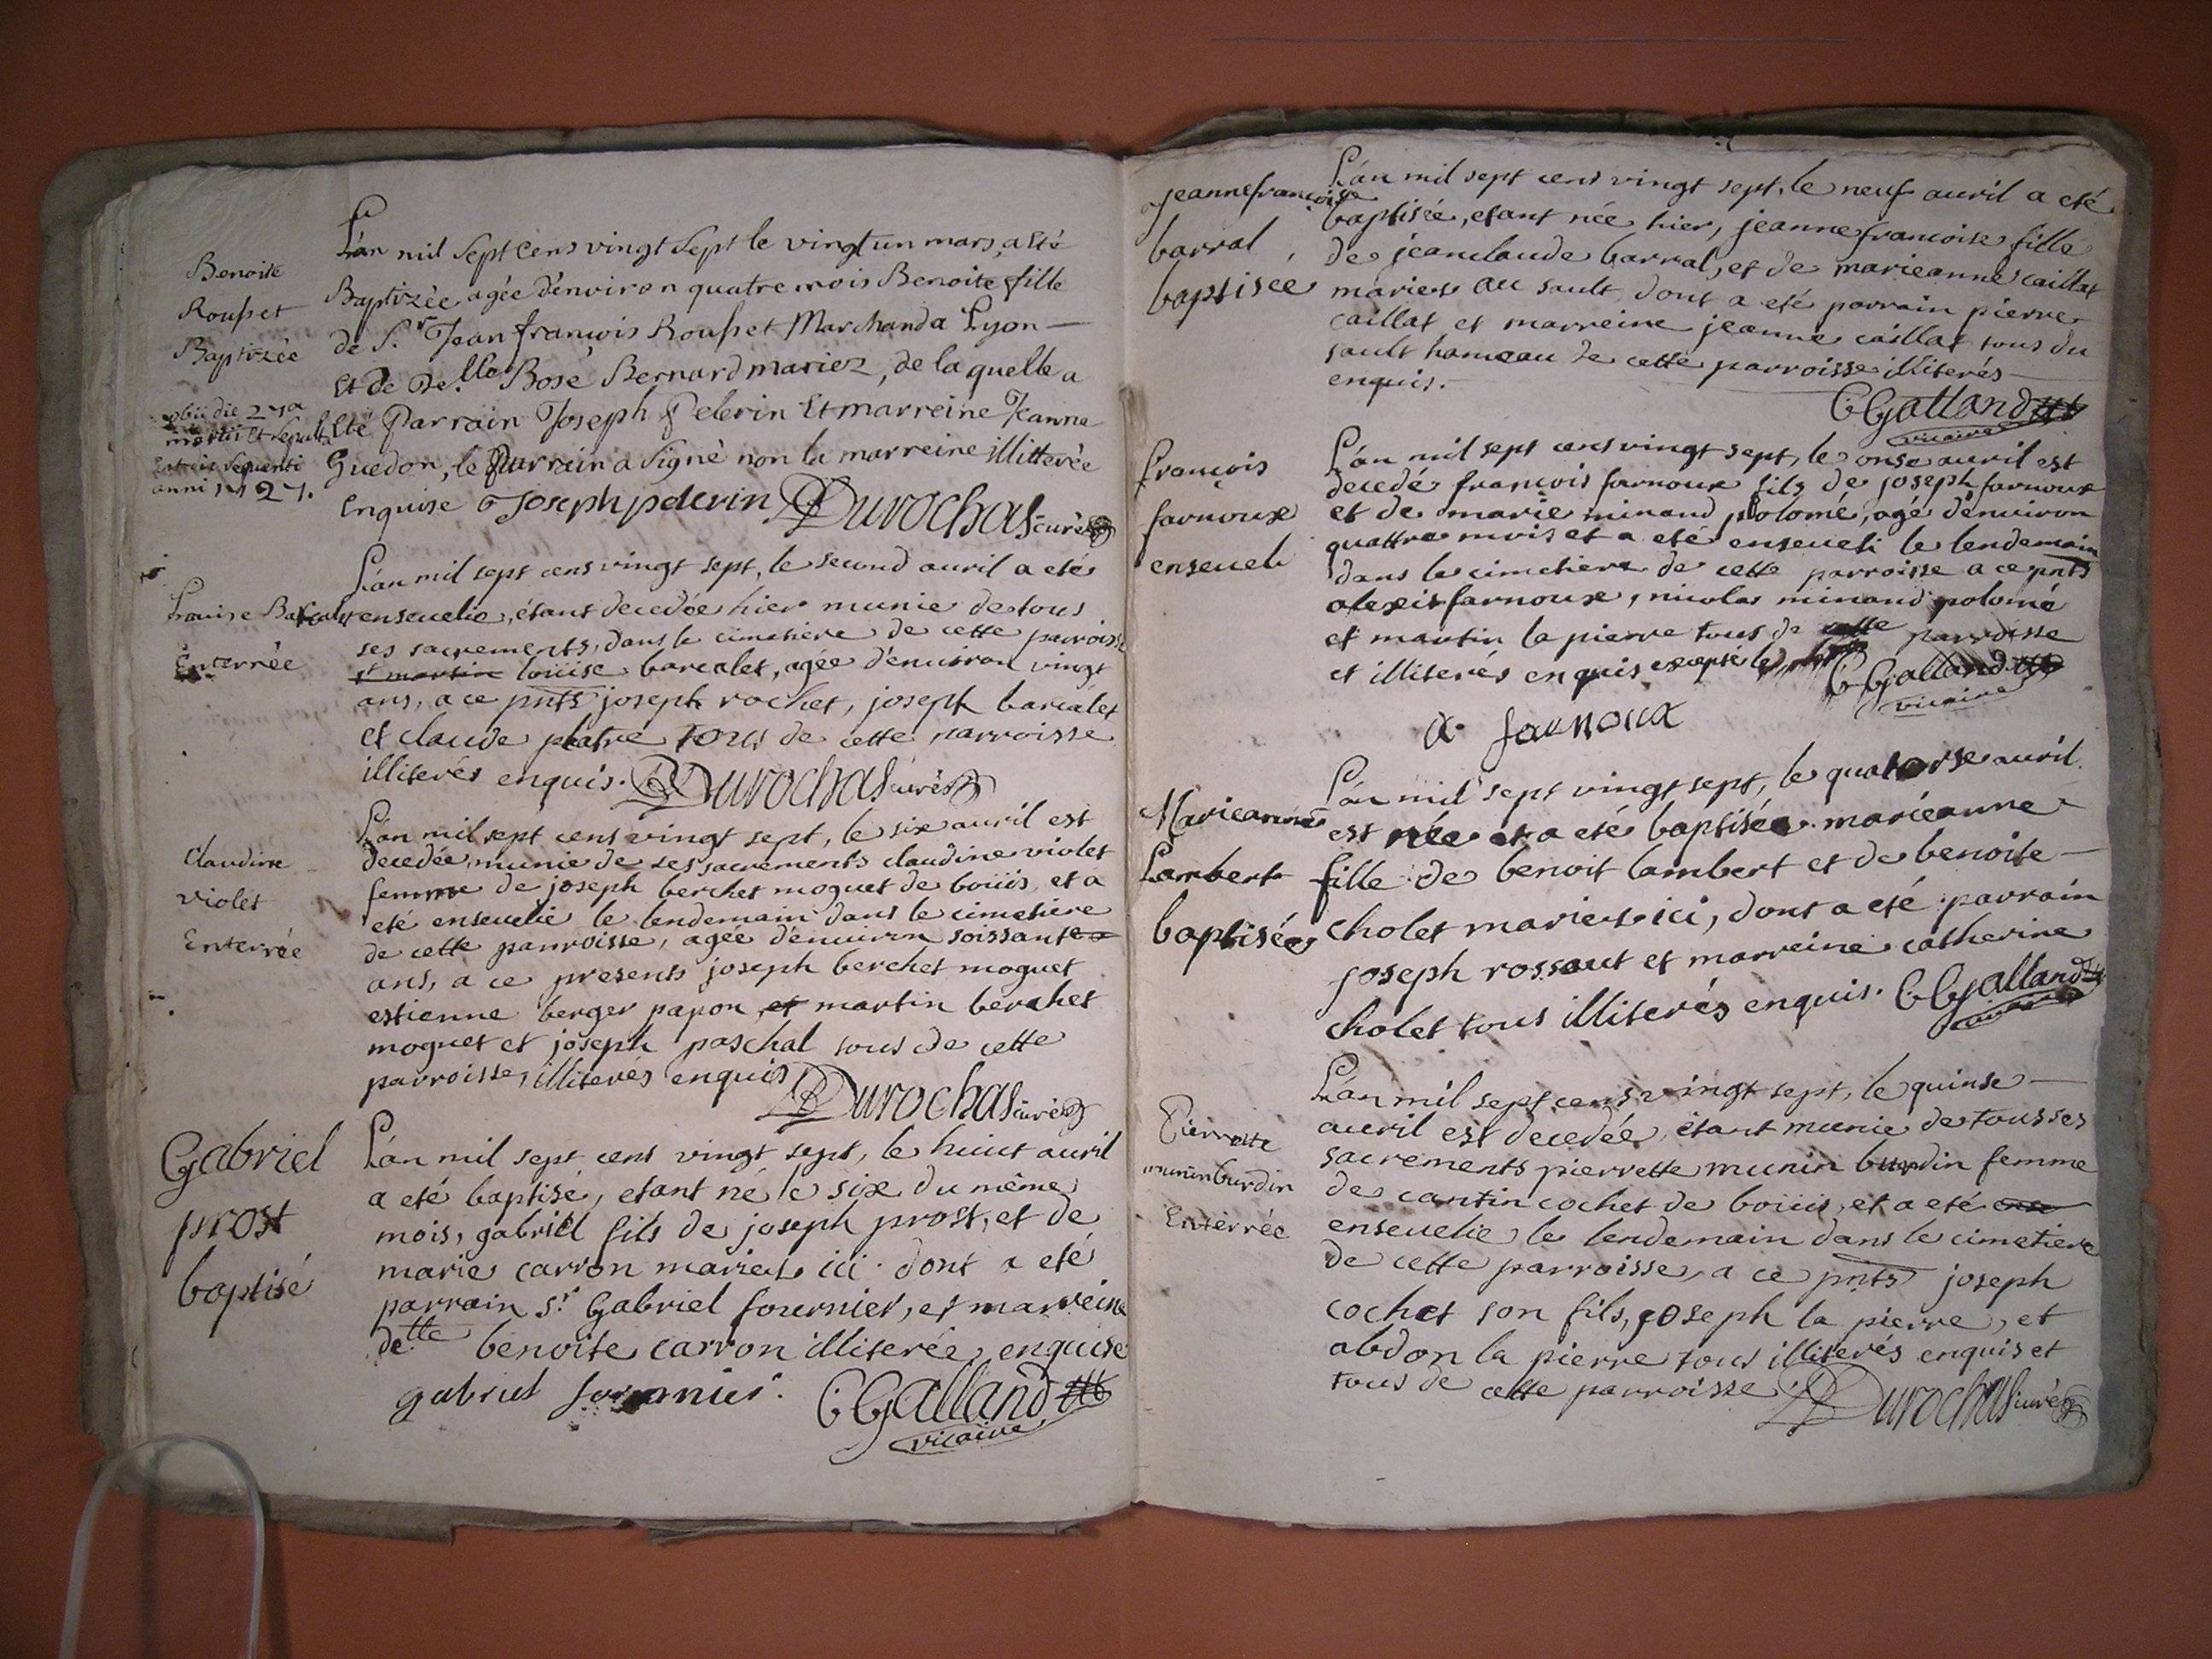 Benoite
Rousset
Baptizée
obiit die 27a
martii et sepulta
est die sequenti
anni 1727.
L'an mil Sept Cens vingt Sept le vingt un mars, a Eté
Baptizée agée d'environ quatre mois Benoite fille
de S.r Jean françois Rousset Marchand a Lyon
Et de De.lle Bernard mariez, de la quelle a
Eté Parrain Joseph Pelerin Et marreine Jeanne
Guedon, le Parrain a signé non la marreine illitterée
Enquise Joseph pelerin Durochas curé
Louise Barcalet
Enterrée
L'an mil sept cens vingt sept, le second auril a eté
enseuelie, étant decedée hier munie de tous
ses sacrements, dans le cimetière de cette parroisse
st martin loüise barcalet, agée d'enuiron vingt
ans, a ce pnts joseph rochet, joseph barcalet
et claude platre tous de cette parroisse
illiterés enquis. Durochas curé
Claudine
violet
Enterrée
L'an mil sept cens vingt sept, le six auril est
decedée munie de ses sacrements claudine violet
femme de joseph berchet moguet de boüis et a
eté enseuelie le lendemain dans le cimetière
de cette parroisse, agée d'enuiron soissante
ans, a ce presents joseph berchet moguet
estienne berger papon et martin berchet
moguet et joseph paschal tous de cette
parroisse, illiterés enquis Durochas curé
Gabriel
prost
baptisé
L'an mil sept cens vingt sept, le huict auril
a eté baptisé, etant né le six du même
mois, gabriel fils de joseph prost, et de
marie carron mariets ici dont a eté
parrain S.r Gabriel fournier, et marreine
de.lle benoite carron illiterée enquise
gabriel fournier. C Galland
vicaire
jeannefrançoise
barral
baptisée
L'an mil sept cens vingt sept, le neuf auril a eté
baptisée, etant née hier, jeannefrancoise fille
de jeanclaude barral, et de marieanne caillat
mariets au sault dont a eté parrain pierre
caillat et marreine jeanne caillat tous du
sault hameau de cette parroisse illiterés
enquis.
C Galland
vicaire
françois
farnoux
enseueli
L'an mil sept cens vingt sept, le onse auril est
decedé francois farnoux fils de joseph farnoux
et de marie minand polomé, agé d'enuiron
quattre mois et a eté enseueli le lendemain
dans le cimetiere de cette parroisse a ce pnts
alexis farnoux, nicolas minand polomé
et martin la pierre tous de cette parroisse
et illiterés enquis excepté le
C Galland
vicaire
a. farnoux
Marieanne
Lambert
baptisée
L'an mil sept vingt sept, le quatorse auril
est née et a eté baptisée marieanne
fille de benoit lambert et de benoite
cholet mariets ici, dont a eté parrain
joseph rossaut et marreine catherine
cholet tous illiterés enquis. C Galland
vicaire
Pierrette
muninburdin
Enterrée
L'an mil sept cens vingt sept, le quinse
auril est decedée, étant munie de tous ses
sacrements pierrette munin burdin femme
de cantin cochet de boüis, et a eté
enseuelie le lendemain dans le cimetiere
de cette parroisse, a ce pnts joseph
cochet son fils, joseph la pierre, et
abdon la pierre tous illiterés enquis et
tous de cette parroisse. Durochas curé